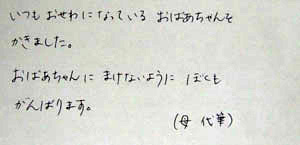 いつも おせわに なっている おばあちゃんを
かきました。
おばあちゃんに まけないように ぼくも
がんばります。
(母 代筆)